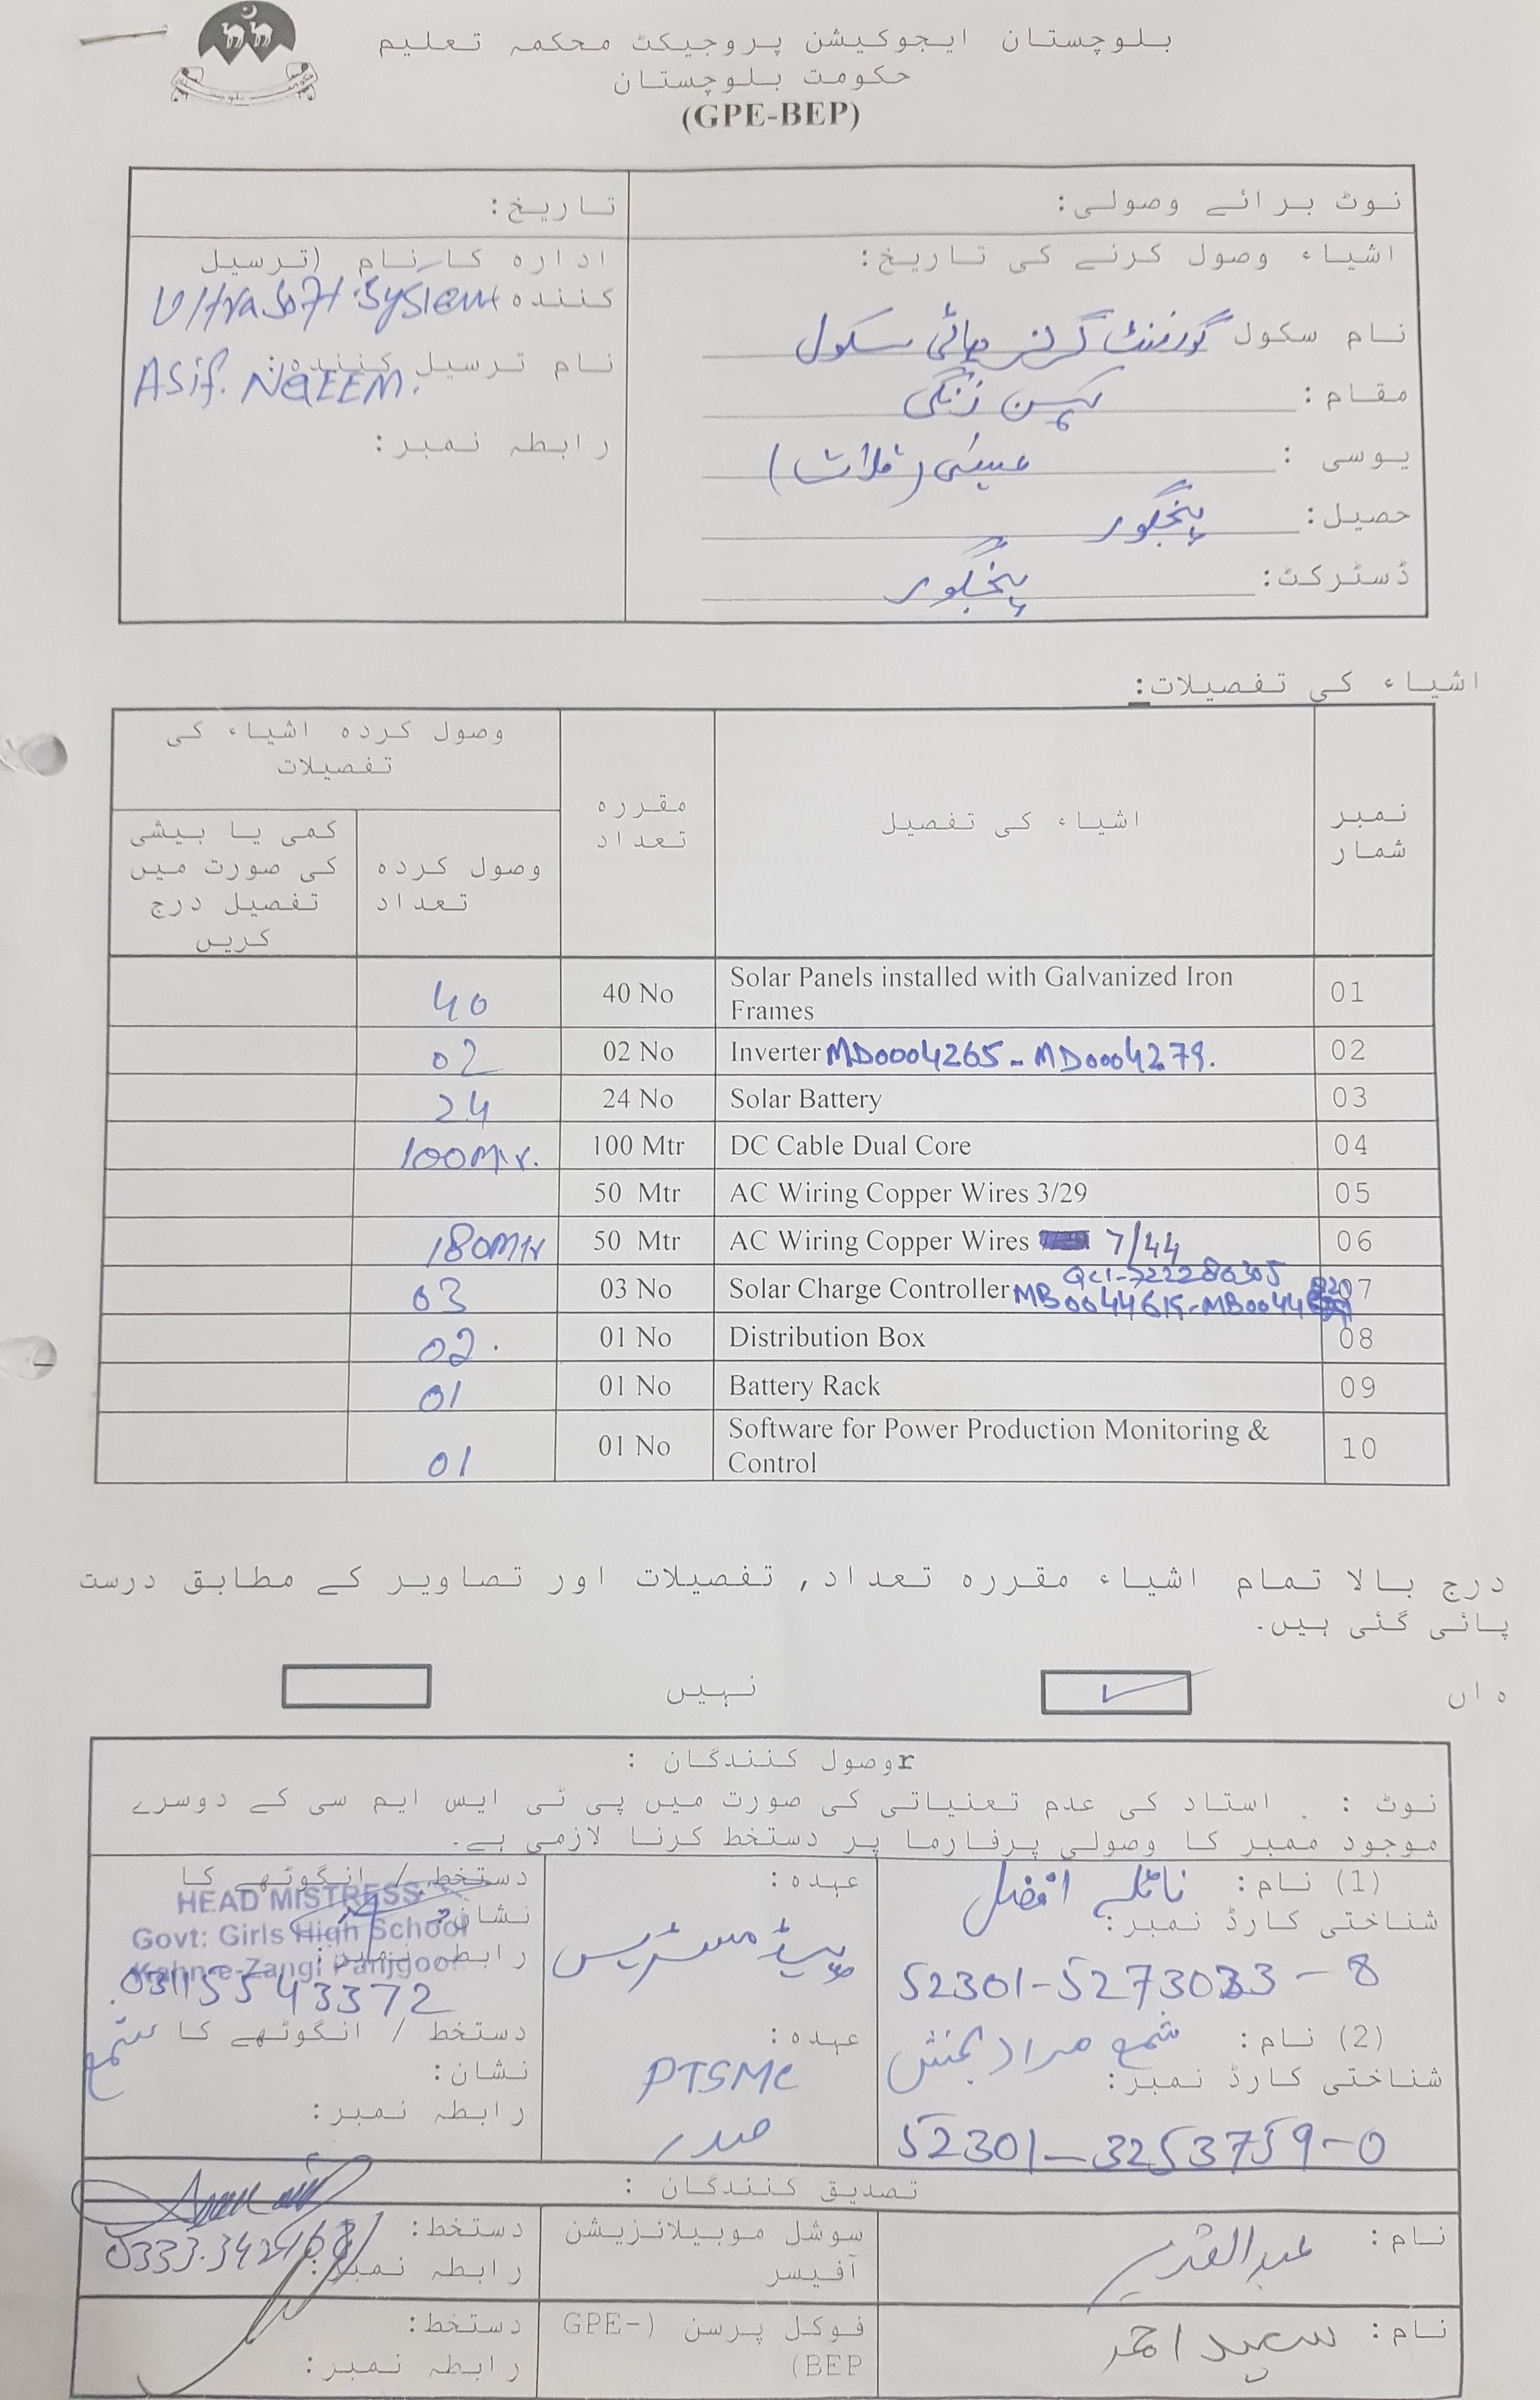 بلوچستان ایجوکیشن پروجیکٹ محکمہ تعلیم
حکومت بلوچستان
(GPE-BEP)
نوٹ برائے وصولی:
تاریخ:
اشیاء وصول کرنے کی تاریخ:
نام سکول گورنمنٹ گرلز ہائی سکول
مقام: کہن زنگی
یوسی : عیسئی (قلات)
حصیل: پنجگور
ڈسٹرکٹ: پنجگور
ادارہ کا نام (ترسیل
کنندہ Ultrasoft System
نام ترسیل کنندہ:
Asif. NaEEM.
رابطہ نمبر:
اشیاء کی تفصیلات:
نمبر شمار
اشیاء کی تفصیل
مقررہ تعداد
وصول کردہ اشیاء کی تفصیلات
وصول کردہ تعداد
کمی یا بیشی کی صورت میں تفصیل درج کریں
01 Solar Panels installed with Galvanized Iron Frames 40 No 40
02 Inverter MD0004265 - MD0004279. 02 No 02
03 Solar Battery 24 No 24
04 DC Cable Dual Core 100 Mtr 100Mtr.
05 AC Wiring Copper Wires 3/29 50 Mtr
06 AC Wiring Copper Wires 7/44 50 Mtr 180Mtr
07 Solar Charge Controller 03 No 03
08 Distribution Box 01 No 02.
09 Battery Rack 01 No 01
10 Software for Power Production Monitoring & Control 01 No 01
درج بالا تمام اشیاء مقررہ تعداد, تفصیلات اور تصاویر کے مطابق درست
پائی گئی ہیں.
ہاں ✓
نہیں
rوصول کنندگان :
نوٹ : . استاد کی عدم تعنیاتی کی صورت میں پی ٹی ایس ایم سی کے دوسرے
موجود ممبر کا وصولی پرفارما پر دستخط کرنا لازمی ہے.
(1) نام: نائلہ افضل
شناختی کارڈ نمبر:
52301-5273033-8
عہدہ:
ہیڈ مسٹریس
دستخط / انگوٹھے کا
نشان:
رابطہ نمبر:
HEAD MISTRESS
Govt: Girls High School
Kahn-e-Zangi Panjgoor
03115543372
(2) نام: شمع مراد بخش
شناختی کارڈ نمبر:
52301-3253759-0
عہدہ:
PTSMC
صدر
دستخط / انگوٹھے کا شمع
نشان:
رابطہ نمبر:
تصدیق کنندگان :
نام: عبدالقدیر
سوشل موبیلائزیشن
آفیسر
دستخط:
رابطہ نمبر:
نام: سعید احمد
فوکل پرسن (GPE-
BEP)
دستخط:
رابطہ نمبر: